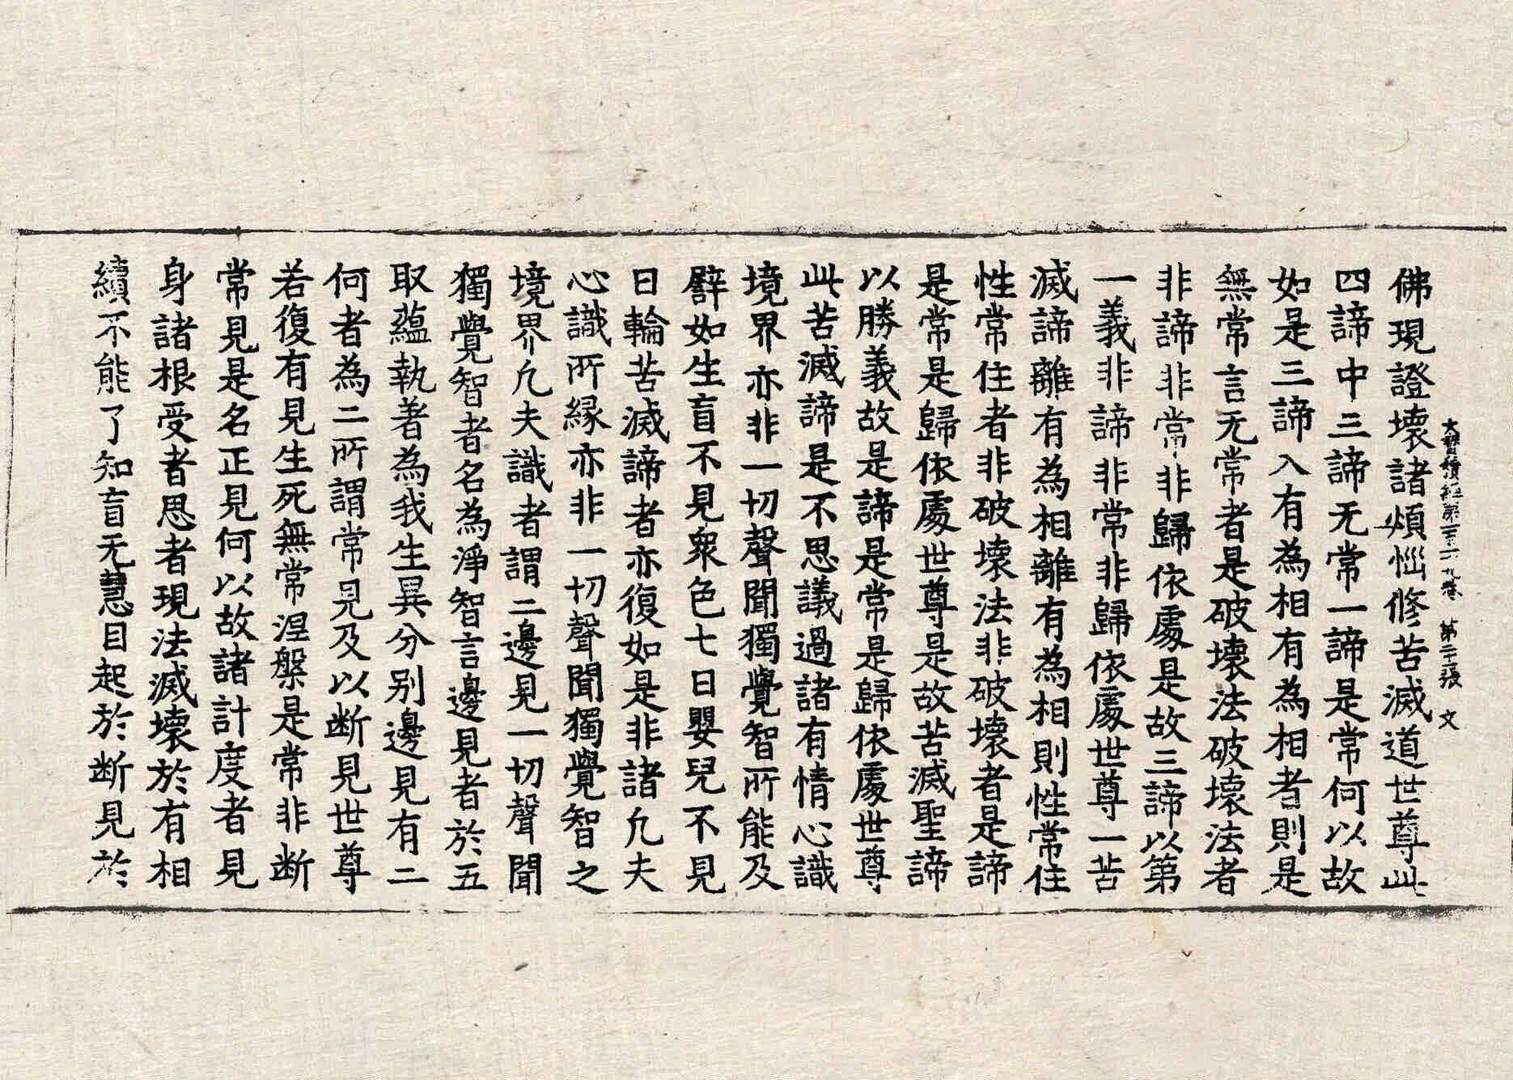 大寶積經第一百一十九卷 第二十張 文
佛現證壞諸煩惱修苦滅道世尊此
四諦中三諦无常一諦是常何以故
如是三諦入有為相有為相者則是
無常言无常者是破壞法破壞法者
非諦非常非歸依處是故三諦以第
一義非諦非常非歸依處世尊一苦
滅諦離有為相離有為相則性常住
性常住者非破壞法非破壞者是諦
是常是歸依處世尊是故苦滅聖諦
以勝義故是諦是常是歸依處世尊
此苦滅諦是不思議過諸有情心識
境界亦非一切聲聞獨覺智所能及
譬如生盲不見眾色七日嬰兒不見
日輪苦滅諦者亦復如是非諸凡夫
心識所緣亦非一切聲聞獨覺智之
境界凡夫識者謂二邊見一切聲聞
獨覺智者名為淨智言邊見者於五
取蘊執著為我生異分別邊見有二
何者為二所謂常見及以断見世尊
若復有見生死無常涅槃是常非断
常見是名正見何以故諸計度者見
身諸根受者思者現法滅壞於有相
續不能了知盲无慧目起於断見於